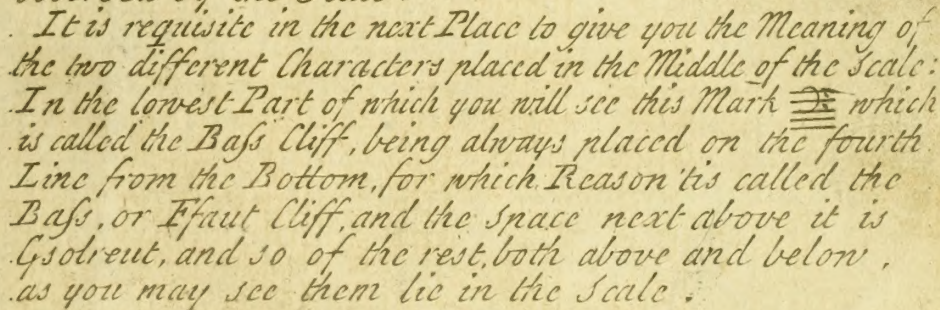 It is requisite in the next Place to give you the Meaning of
the two different Characters placed in the Middle of the Scale:
In the lowest Part of which you will see this Mark which
is called the Baſs Cliff, being always placed on the fourth
Line from the Bottom, for which Reason 'tis called the
Baſs, or Ffaut Cliff, and the Space next above it is
Gsolreut, and so of the rest, both above and below,
as you may see them lie in the Scale.